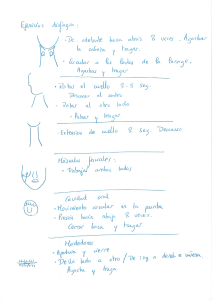 Ejercicios disfagia.
- De adelante hacia atrás 8 veces. Agachar
la cabeza y tragar.
- Circular a los lados de la faringe.
Agachar y tragar
- Rotar el cuello 3-5 seg.
Descansar al centro
- Rotar al otro lado
- Rotar y tragar
- Extensión de cuello 8 seg. Descanso.
Músculos faciales.
- Trabajar ambos lados
Cavidad oral
- Movimiento circular en la
- Presión hacia abajo 8 veces.
Cerrar boca y tragar
Mordedores
- Apretura y cierre
- De un lado a otro / De izq a derecha
Agacha y traga